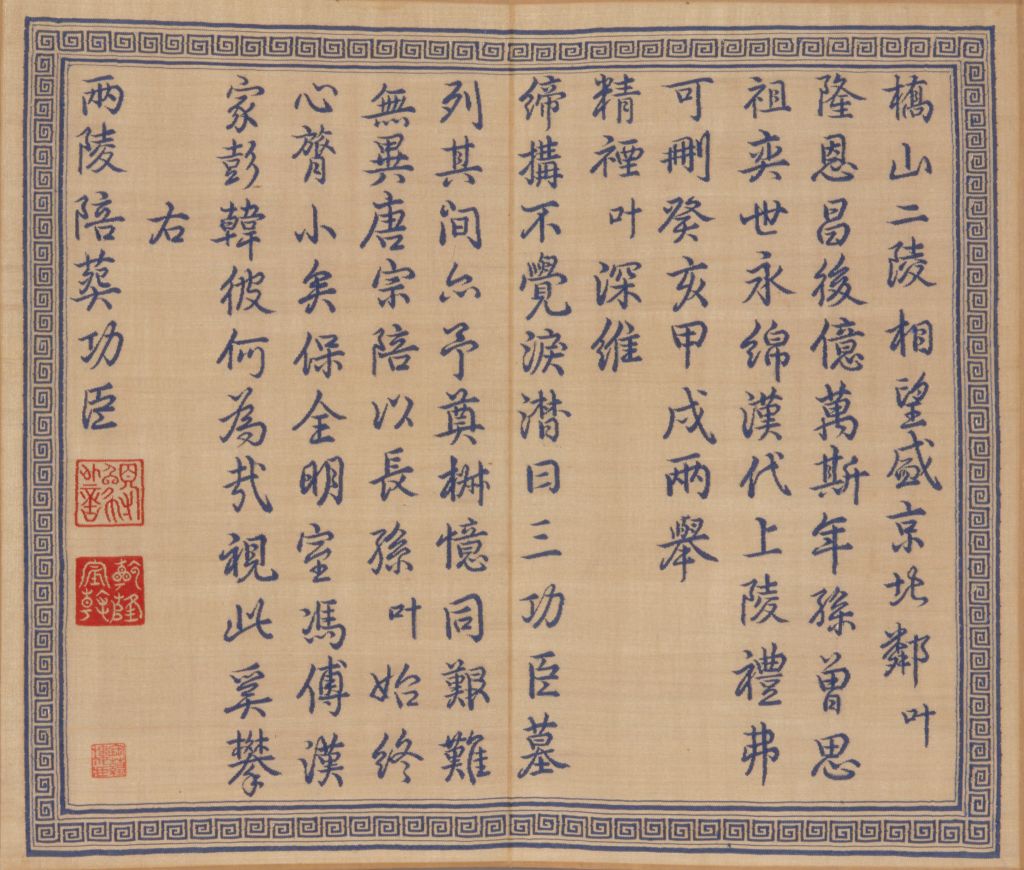 橋山二陵相望盛京北鄰叶
隆恩昌後億萬斯年孫曾思
祖奕世永綿漢代上陵禮弗
可刪癸亥甲戌兩舉
精禋叶深維
締搆不覺淚潸曰三功臣墓
列其间亦予奠憶同艱難
無異唐宗陪以長孫叶始終
心膂小矣保全明室馮傅漢
家彭韓彼何為哉視此奚攀
右
兩陵陪葬功臣
乾隆宸翰